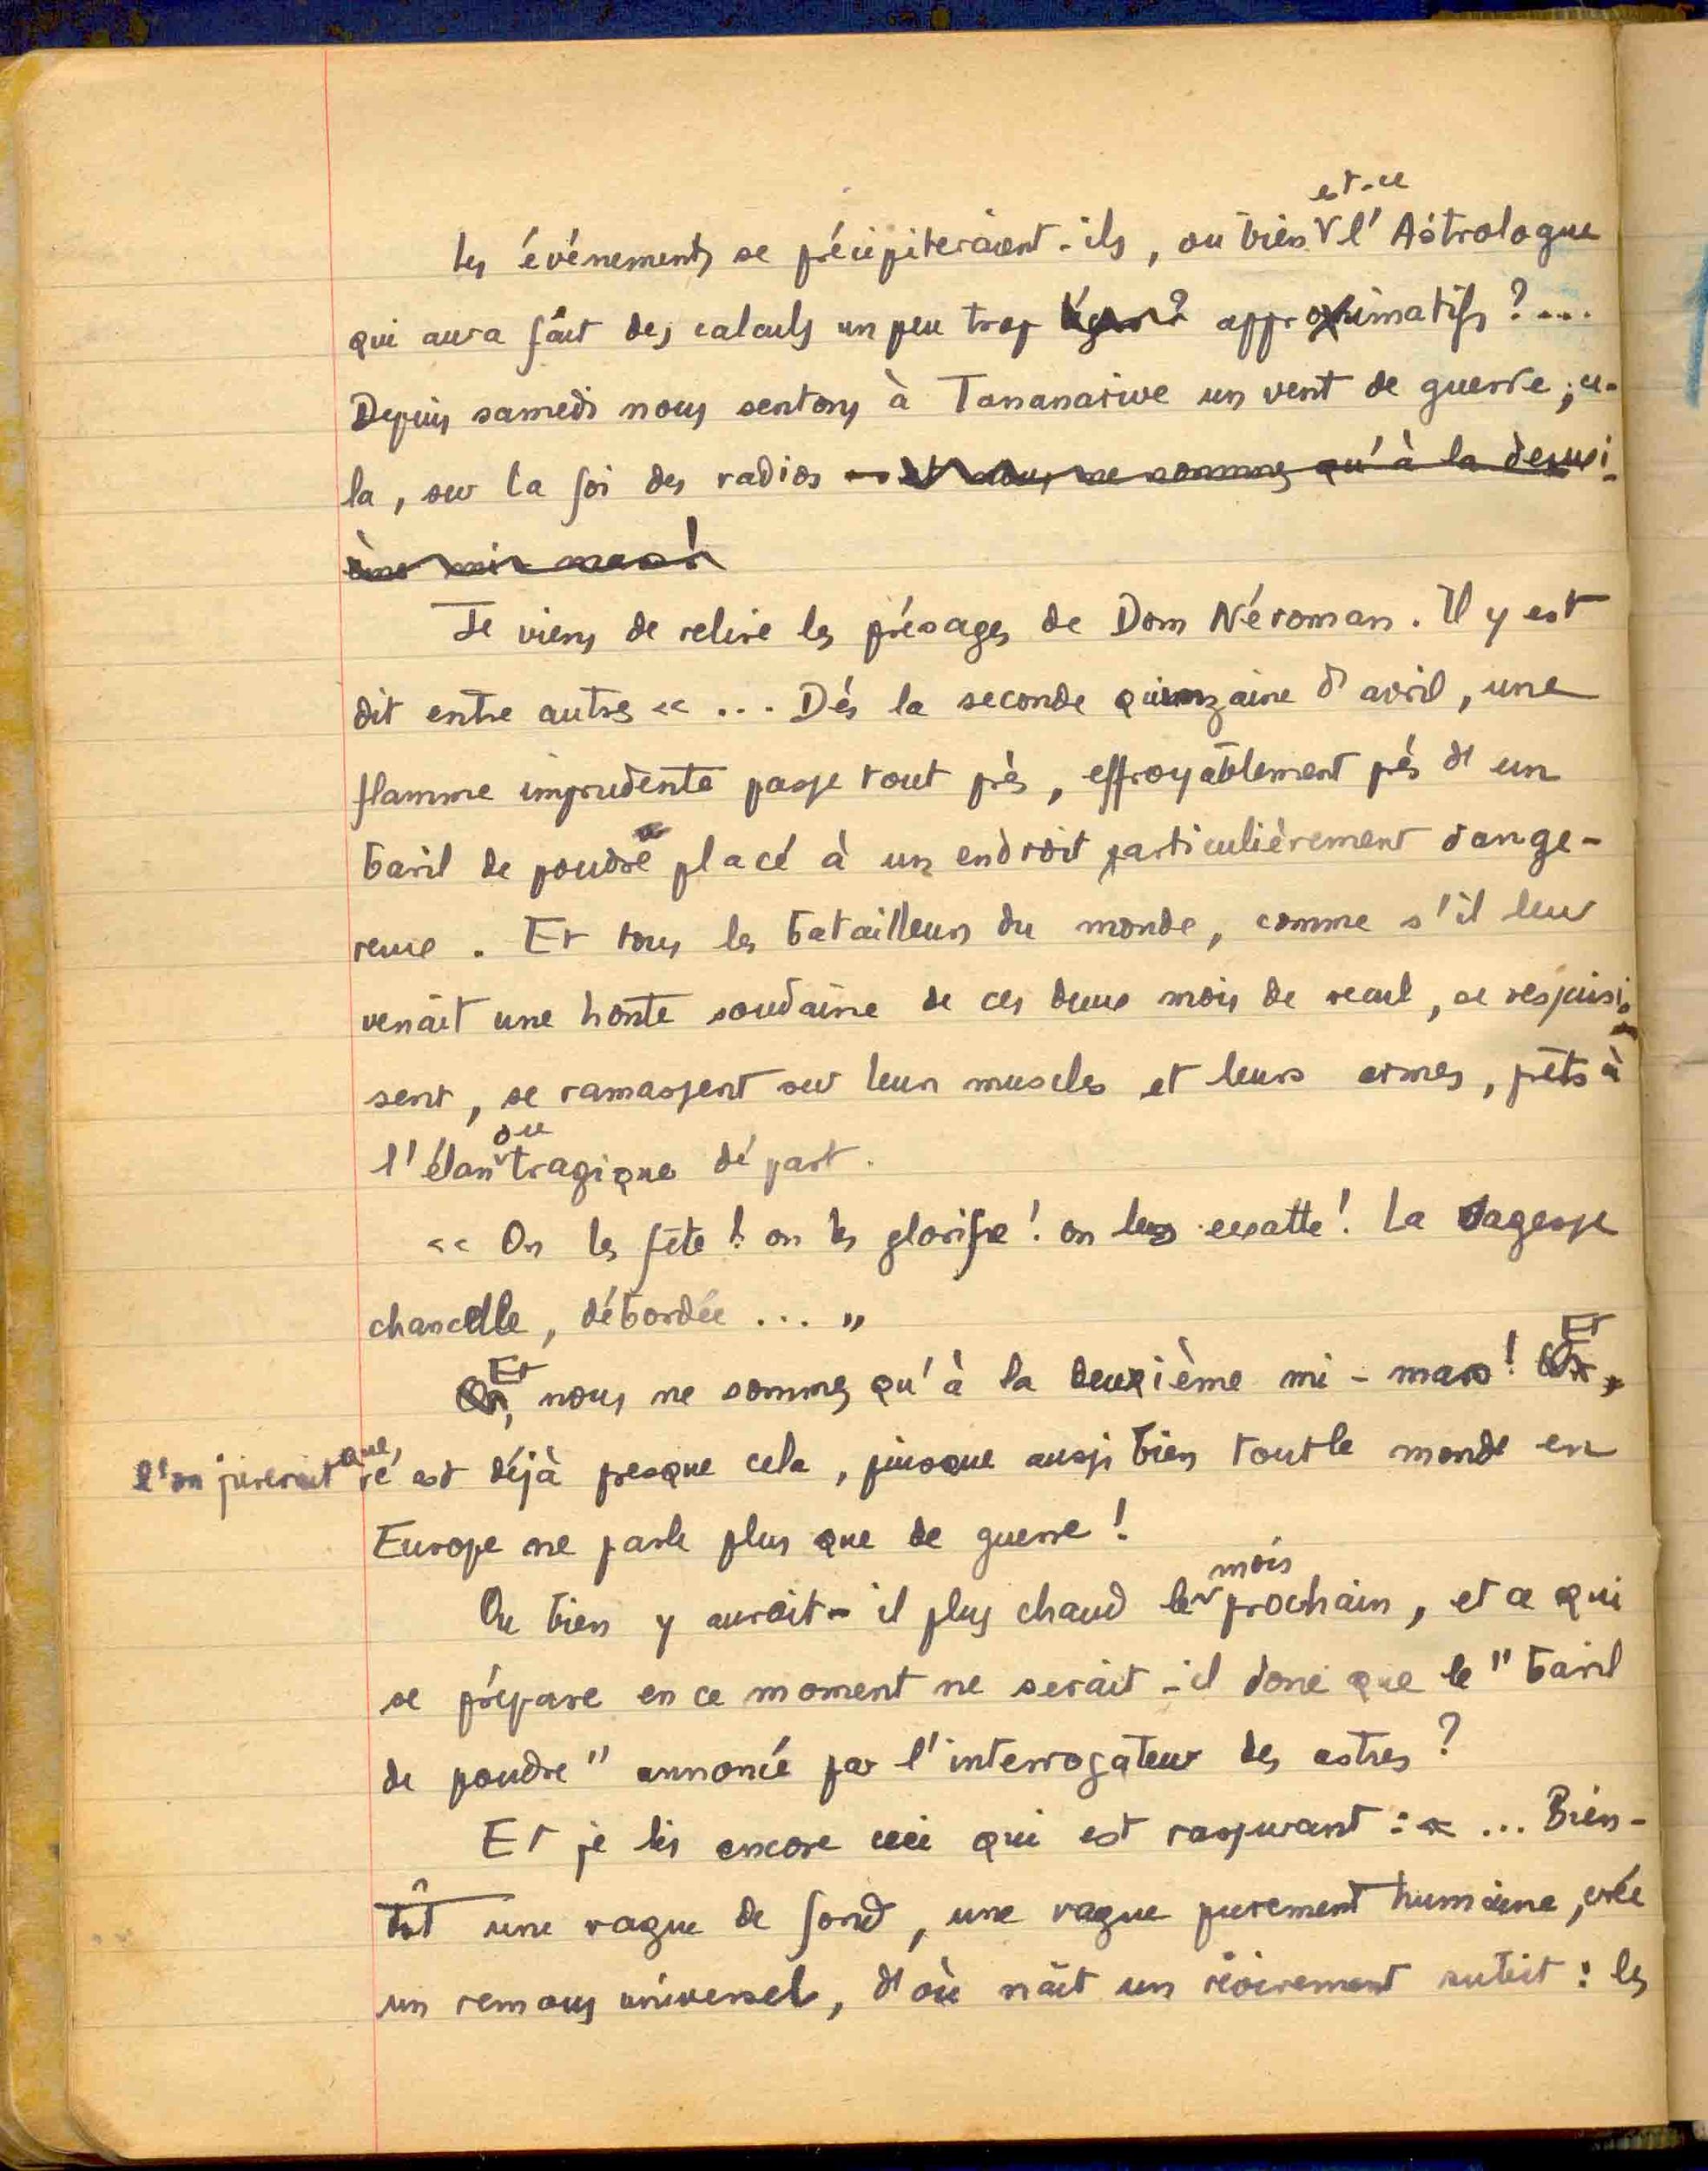 est-ce
Les événements se précipiteraient-ils, ou bien l'Astrologue
qui aura fait des calculs un peu trop légers? approximatifs?....
Depuis samedi nous sentons à Tananarive un vent de guerre; ce-
la, sur la foi des radios — et nous ne sommes qu'à la deuxi-
ème mi-mars!
Je viens de relire les présages de Dom Néroman. Il y est
dit entre autres « ... Dès la seconde quinzaine d'avril, une
flamme imprudente passe tout près, effroyablement près d'un
baril de poudre placé à un endroit particulièrement dange-
reux. Et tous les batailleurs du monde, comme s'il leur
venait une honte soudaine de ces deux mois de recul, se
sent, se ramassent sur leurs muscles et leurs armes, prêts à
ou
l'élan tragique départ.
« On les fête! on les glorifie! on les exalte! La sagesse
chancelle, débordée ... »
Et Et
nous ne sommes qu'à la deuxième mi-mars!
l'on jurerait que, ce est déjà presque cela, puisque aussi bien tout le monde en
Europe ne parle plus que de guerre!
mois
Ou bien y aurait-il plus chaud le prochain, et ce qui
se prépare en ce moment ne serait-il donc que le "baril
de poudre" annoncé par l'interrogateur des astres?
Et je lis encore ceci qui est rassurant: « ... Bien-
tôt une vague de fond, une vague purement humaine, crée
un remous universel, d'où naît un revirement subit: les